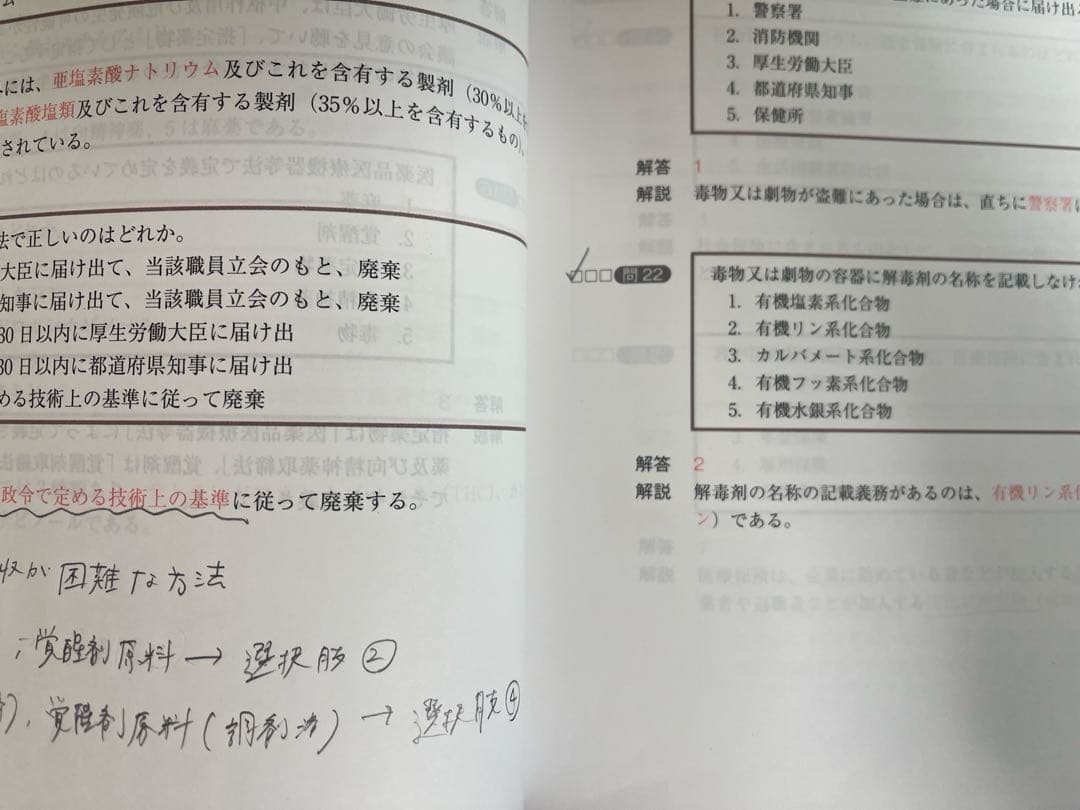 には、亜塩素酸ナトリウム及びこれを含有する製剤（30％以上
塩素酸塩類及びこれを含有する製剤（35％以上を含有するもの）、
されている。
法で正しいのはどれか。
大臣に届け出て、当該職員立会のもと、廃棄
知事に届け出て、当該職員立会のもと、廃棄
30日以内に厚生労働大臣に届け出
30日以内に都道府県知事に届け出
める技術上の基準に従って廃棄
政令で定める技術上の基準に従って廃棄する。
収が困難な方法
覚醒剤原料→選択肢②
覚醒剤原料（調剤済）→選択肢④
あった場合に届け出
1. 警察署
2. 消防機関
3. 厚生労働大臣
4. 都道府県知事
5. 保健所
解答 1
解説 毒物又は劇物が盗難にあった場合は、直ちに警察署に
問22 毒物又は劇物の容器に解毒剤の名称を記載しなけ
1. 有機塩素系化合物
2. 有機リン系化合物
3. カルバメート系化合物
4. 有機フッ素系化合物
5. 有機水銀系化合物
解答 2
解説 解毒剤の名称の記載義務があるのは、有機リン系化
ン）である。